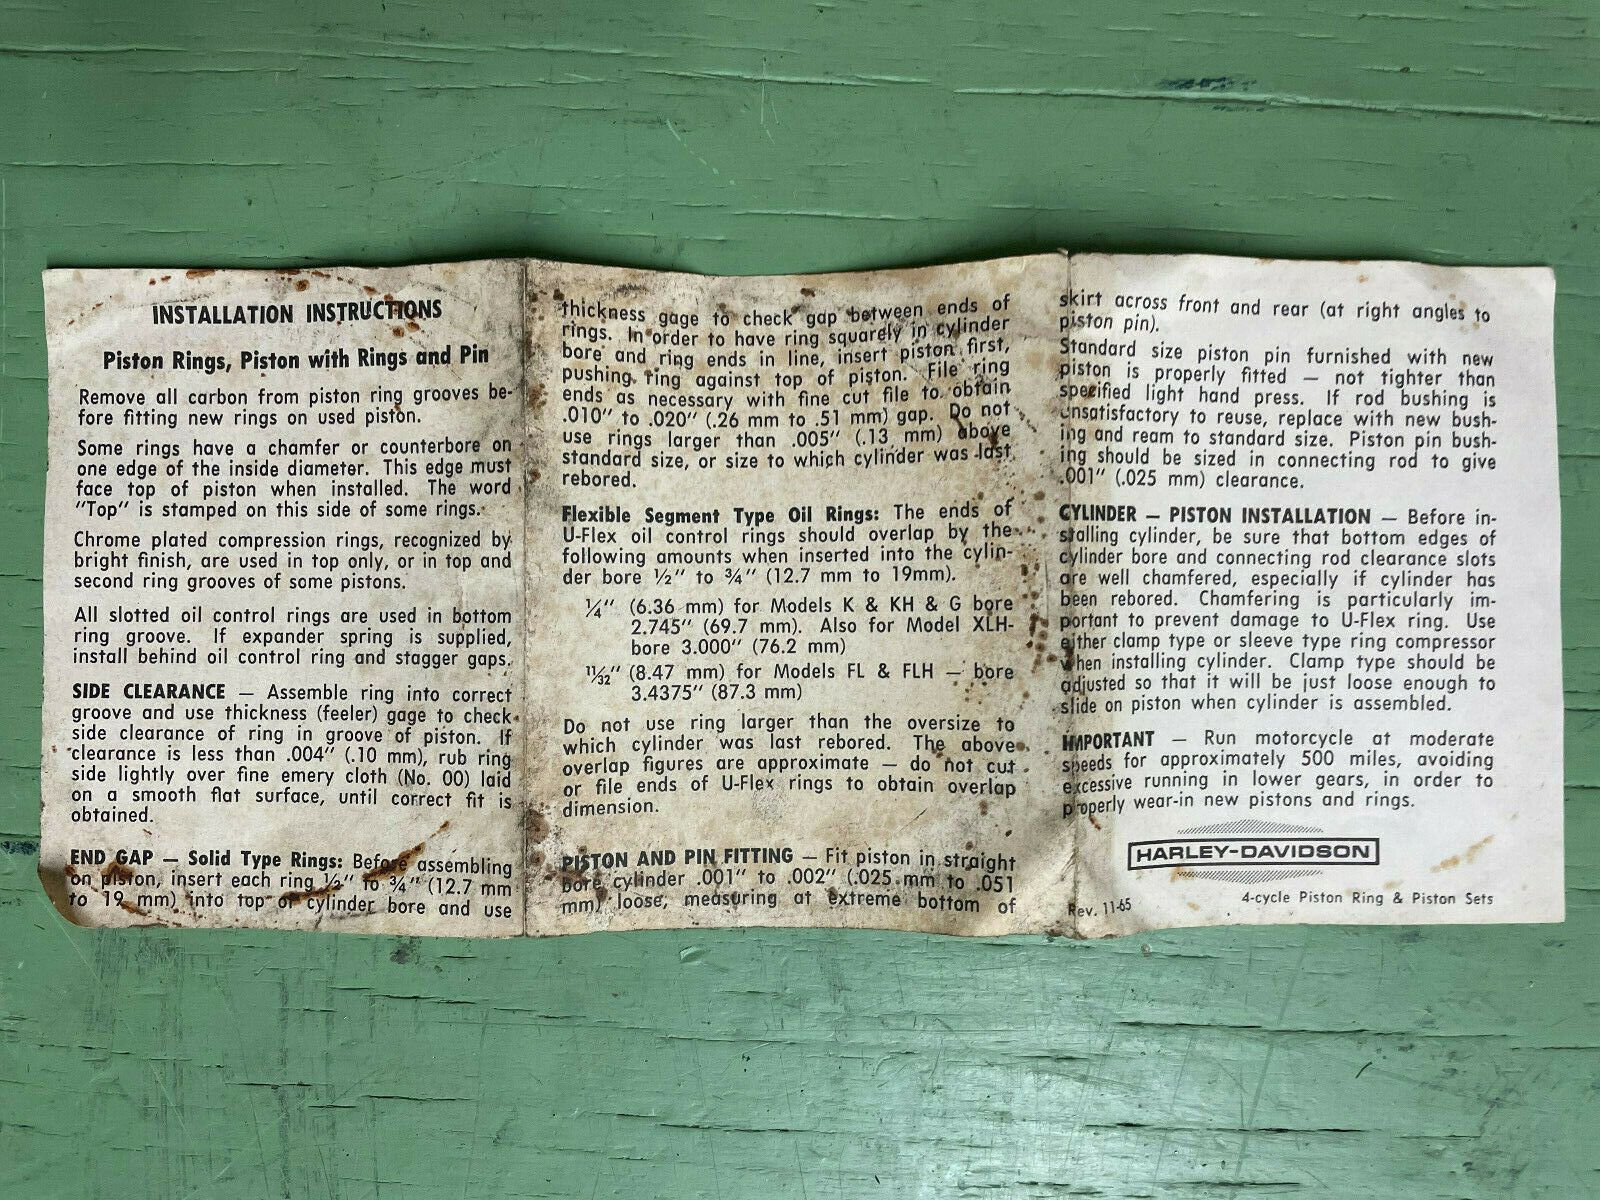 INSTALLATION INSTRUCTIONS
Piston Rings, Piston with Rings and Pin
Remove all carbon from piston ring grooves be-
fore fitting new rings on used piston.
Some rings have a chamfer or counterbore on
one edge of the inside diameter. This edge must
face top of piston when installed. The word
"Top" is stamped on this side of some rings.
Chrome plated compression rings, recognized by
bright finish, are used in top only, or in top and
second ring grooves of some pistons.
All slotted oil control rings are used in bottom
ring groove. If expander spring is supplied,
install behind oil control ring and stagger gaps.
SIDE CLEARANCE — Assemble ring into correct
groove and use thickness (feeler) gage to check
side clearance of ring in groove of piston. If
clearance is less than .004" (.10 mm), rub ring
side lightly over fine emery cloth (No. 00) laid
on a smooth flat surface, until correct fit is
obtained.
END GAP — Solid Type Rings: Before assembling
on piston, insert each ring ½" to ¾" (12.7 mm
to 19 mm) into top of cylinder bore and use
thickness gage to check gap between ends of
rings. In order to have ring squarely in cylinder
bore and ring ends in line, insert piston first,
pushing ring against top of piston. File ring
ends as necessary with fine cut file to obtain
.010" to .020" (.26 mm to .51 mm) gap. Do not
use rings larger than .005" (.13 mm) above
standard size, or size to which cylinder was last
rebored.
Flexible Segment Type Oil Rings: The ends of
U-Flex oil control rings should overlap by the
following amounts when inserted into the cylin-
der bore ½" to ¾" (12.7 mm to 19mm).
¼" (6.36 mm) for Models K & KH & G bore
2.745" (69.7 mm). Also for Model XLH-
bore 3.000" (76.2 mm)
11/32" (8.47 mm) for Models FL & FLH — bore
3.4375" (87.3 mm)
Do not use ring larger than the oversize to
which cylinder was last rebored. The above
overlap figures are approximate — do not cut
or file ends of U-Flex rings to obtain overlap
dimension.
PISTON AND PIN FITTING — Fit piston in straight
bore cylinder .001" to .002" (.025 mm to .051
mm) loose, measuring at extreme bottom of
skirt across front and rear (at right angles to
piston pin).
Standard size piston pin furnished with new
piston is properly fitted — not tighter than
specified light hand press. If rod bushing is
unsatisfactory to reuse, replace with new bush-
ing and ream to standard size. Piston pin bush-
ing should be sized in connecting rod to give
.001" (.025 mm) clearance.
CYLINDER — PISTON INSTALLATION — Before in-
stalling cylinder, be sure that bottom edges of
cylinder bore and connecting rod clearance slots
are well chamfered, especially if cylinder has
been rebored. Chamfering is particularly im-
portant to prevent damage to U-Flex ring. Use
either clamp type or sleeve type ring compressor
when installing cylinder. Clamp type should be
adjusted so that it will be just loose enough to
slide on piston when cylinder is assembled.
IMPORTANT — Run motorcycle at moderate
speeds for approximately 500 miles, avoiding
excessive running in lower gears, in order to
properly wear-in new pistons and rings.
HARLEY-DAVIDSON
4-cycle Piston Ring & Piston Sets
Rev. 11-65